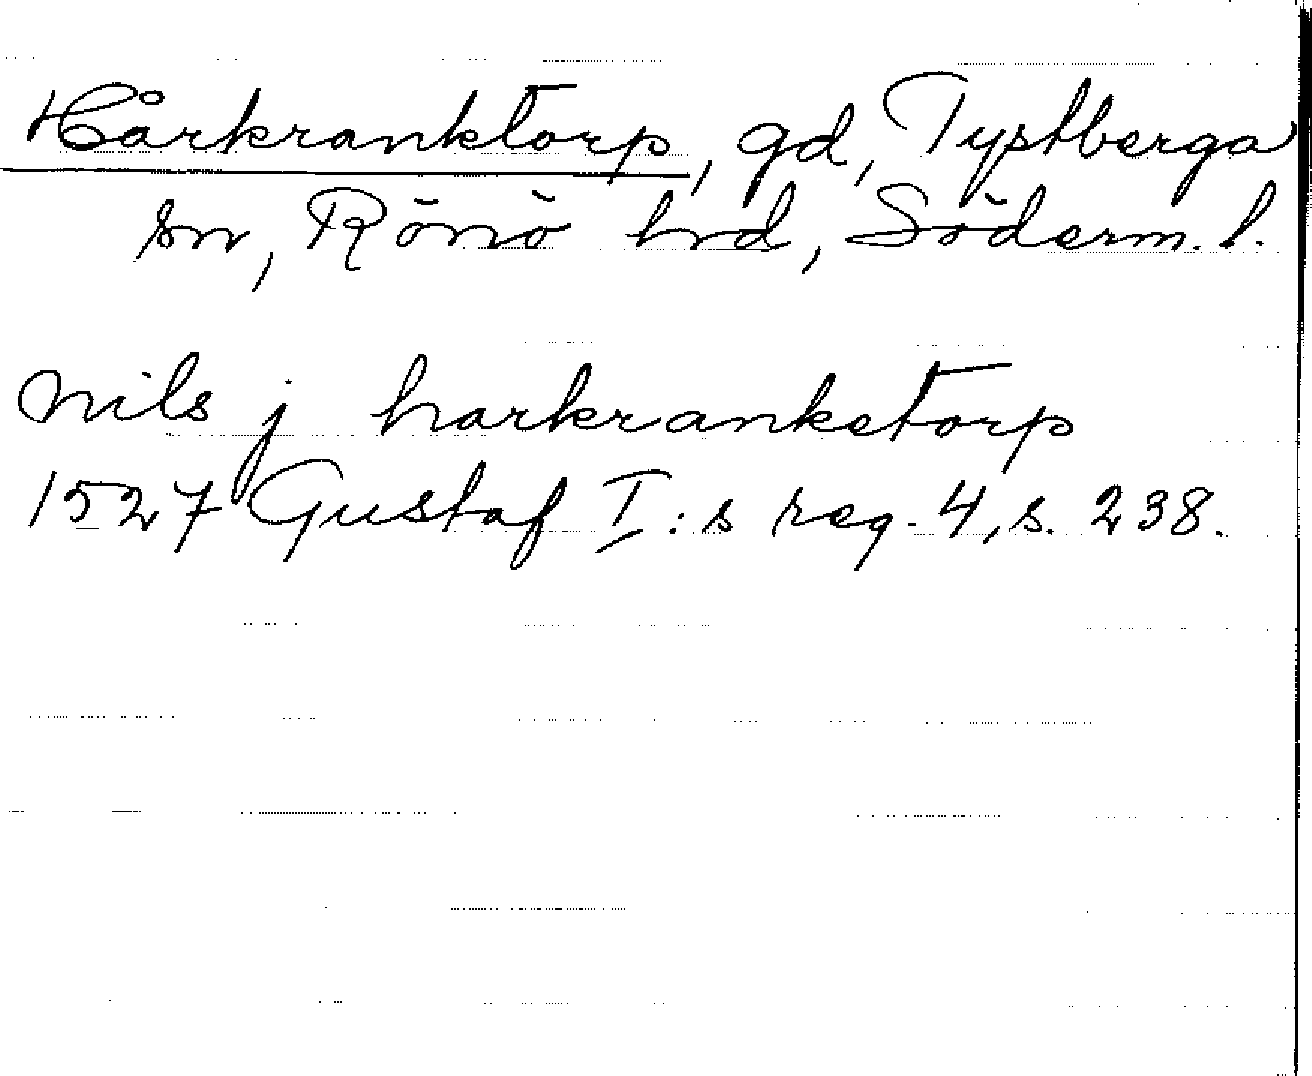 Hårkranktorp, gd, Tystberga
sn, Rönö hrd, Söderm. l.
nils j harkranketorp
1527 Gustaf I:s reg. 4, s. 238.